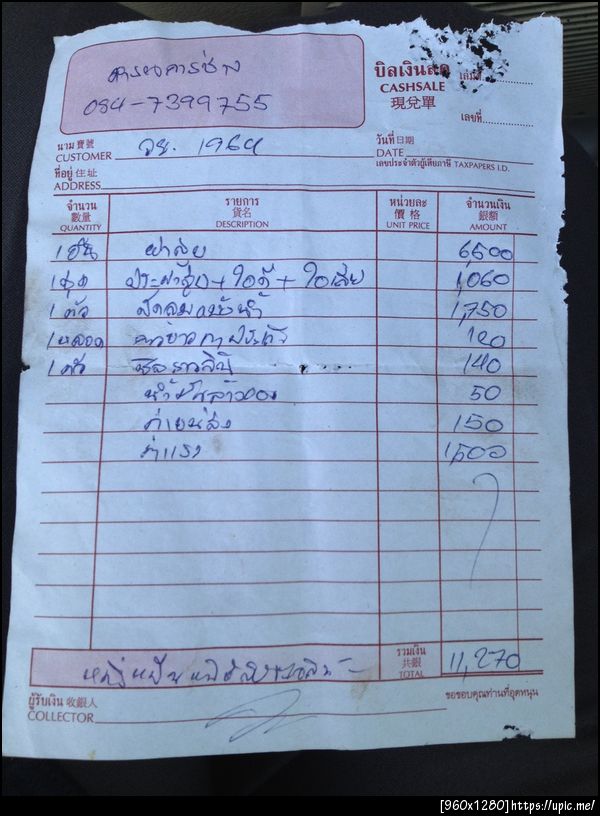 084-7399755
บิลเงินสด
CASHSALE
現兌單
เล่มที่
เลขที่
นาม 寶號
CUSTOMER วย. 1964
วันที่ 日期
DATE
ที่อยู่ 住址
ADDRESS
เลขประจำตัวผู้เสียภาษี TAXPAPERS I.D.
จำนวน 數量 QUANTITY
รายการ 貨名 DESCRIPTION
หน่วยละ 價格 UNIT PRICE
จำนวนเงิน 銀額 AMOUNT
1 ฝาสูบ 6500
1 ชุด ประเก็นฝาสูบ + ไอดี + ไอเสีย 1,060
1 ตัว พัดลมหม้อน้ำ 1,750
1 หลอด กาวยาวทาประเก็น 120
1 ตัว ซีลราวลิ้น 140
น้ำมันล้าง 50
ค่าขนส่ง 150
ค่าแรง 1,500
รวมเงิน 共銀 TOTAL 11,270
ผู้รับเงิน 收銀人
COLLECTOR
ขอขอบคุณท่านที่อุดหนุน
[960x1280]https://upic.me/